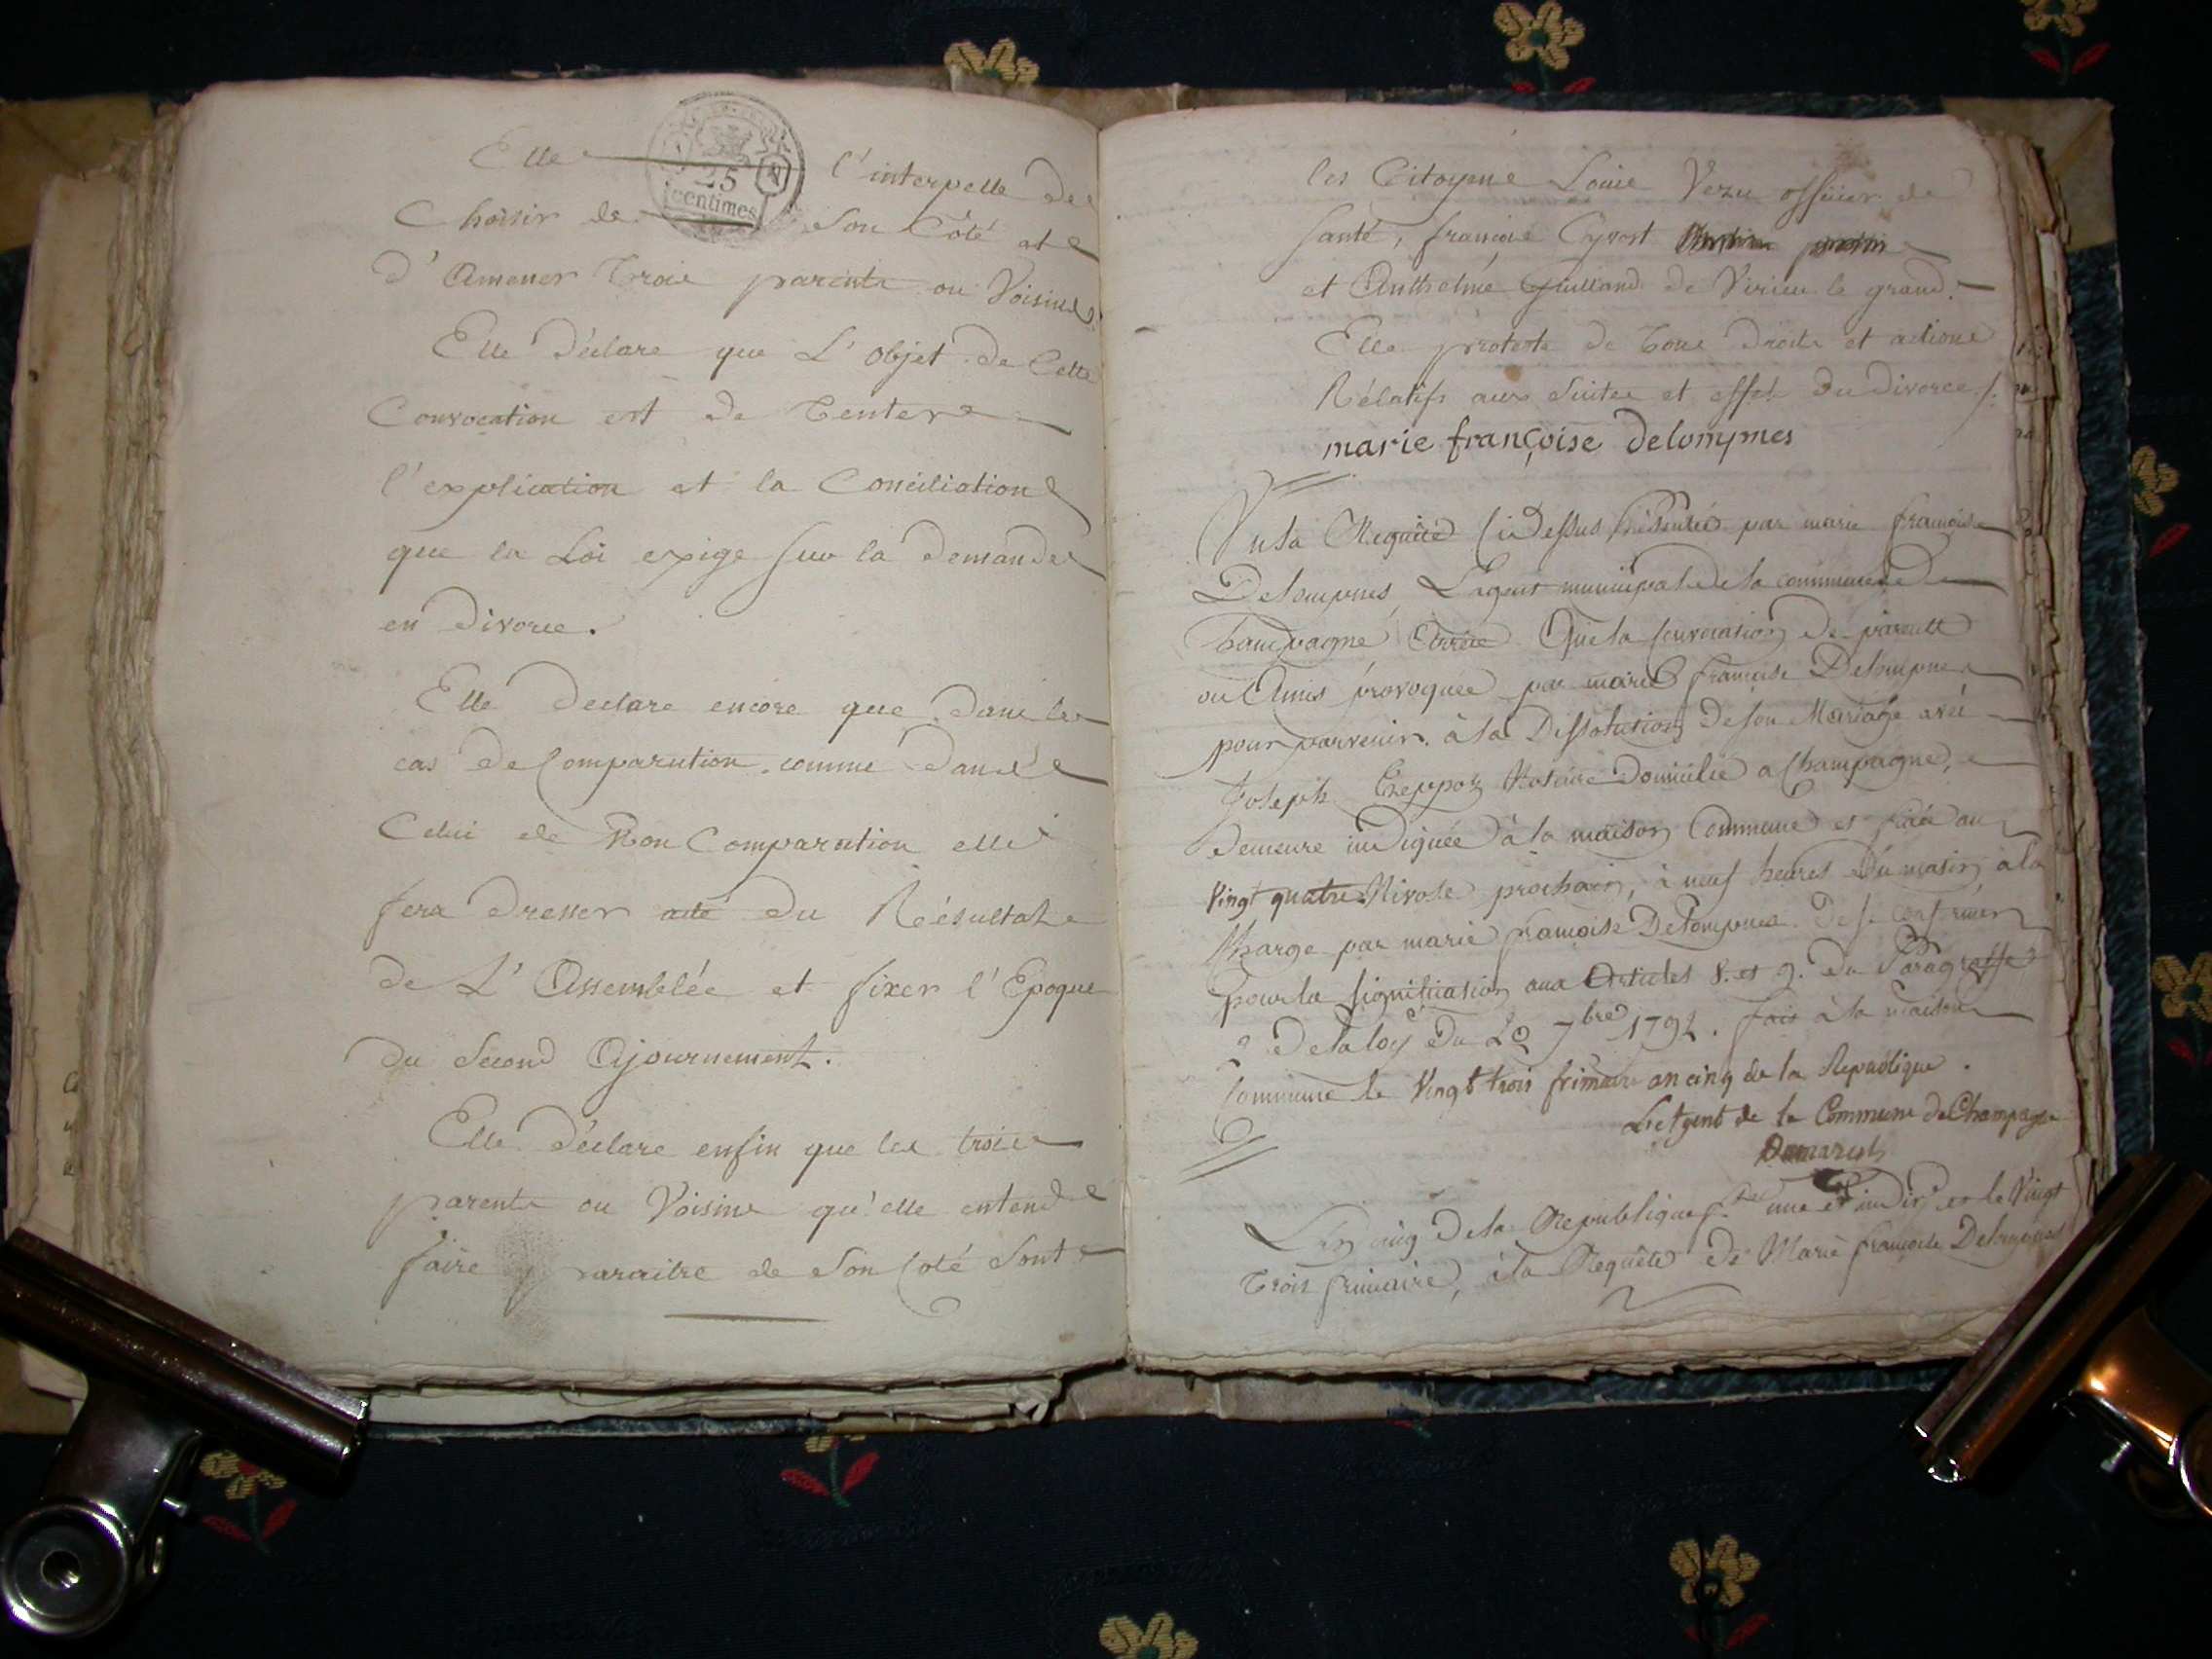 Elle l'interpelle de
25
centimes
Choisir de son Côté et
d'Amener Trois parents ou Voisins.
Elle déclare que L'objet de Cette
Convocation est de Tenter
l'explication et la Conciliation
que la Loi exige sur la demande
en divorce.
Elle declare encore que dans le
cas de Comparution comme dans
Celui de Non Comparution elle
fera dresser acte du Résultat
de L'Assemblée et fixer l'Epoque
du Second Ajournement.
Elle déclare enfin que les trois
parents ou Voisins qu'elle entend
faire paraitre de Son Coté Sont
les Citoyens Louis Vezu officier de
santé, françois Cyvost
et Anthelme Guilland de Virieu le grand.
Elle proteste de Tous droits et actions
Rélatifs aux Suites et effets du divorce ∫.
marie françoise delompnes
Vu la Requête ci Dessus présentée par marie françoise
Delompnes, L'agent municipal de la commune de
Champagne Arrête Que la convocation de parents
ou Amis provoquée par marie françoise Delompnes
pour parvenir à la Dissolution de son Mariage avec
Joseph Notaire Domicilié a Champagne,
Demeure indiquée à la maison Commune et fixée au
Vingt quatre Nivose prochain, à neuf heures du matin à la
charge par marie françoise Delompnes de se conformer
pour la signification aux Articles 8. et 9. du Paragraffe
2 de la loy du 20 7bre 1792. fait à la maison
Commune le Vingt trois frimaire an cinq de la Republique.
L'Agent de la Commune de Champagne
L'an cinq de la Republique f.se une et indiv. et le Vingt
Trois frimaire, à la Requête de Marie françoise Delompnes